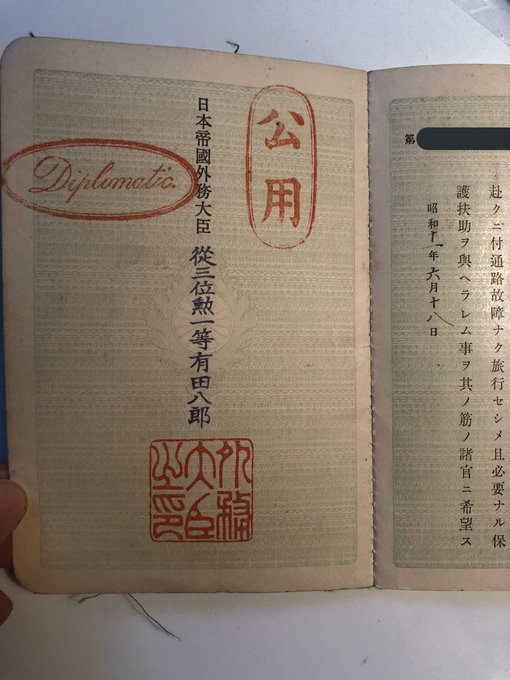 第
赴クニ付通路故障ナク旅行セシメ且必要ナル保
護扶助ヲ與ヘラレム事ヲ其ノ筋ノ諸官ニ希望ス
昭和十一年六月十八日
公用
日本帝國外務大臣 從三位勲一等有田八郎
Diplomatic.
外務
大臣
之印